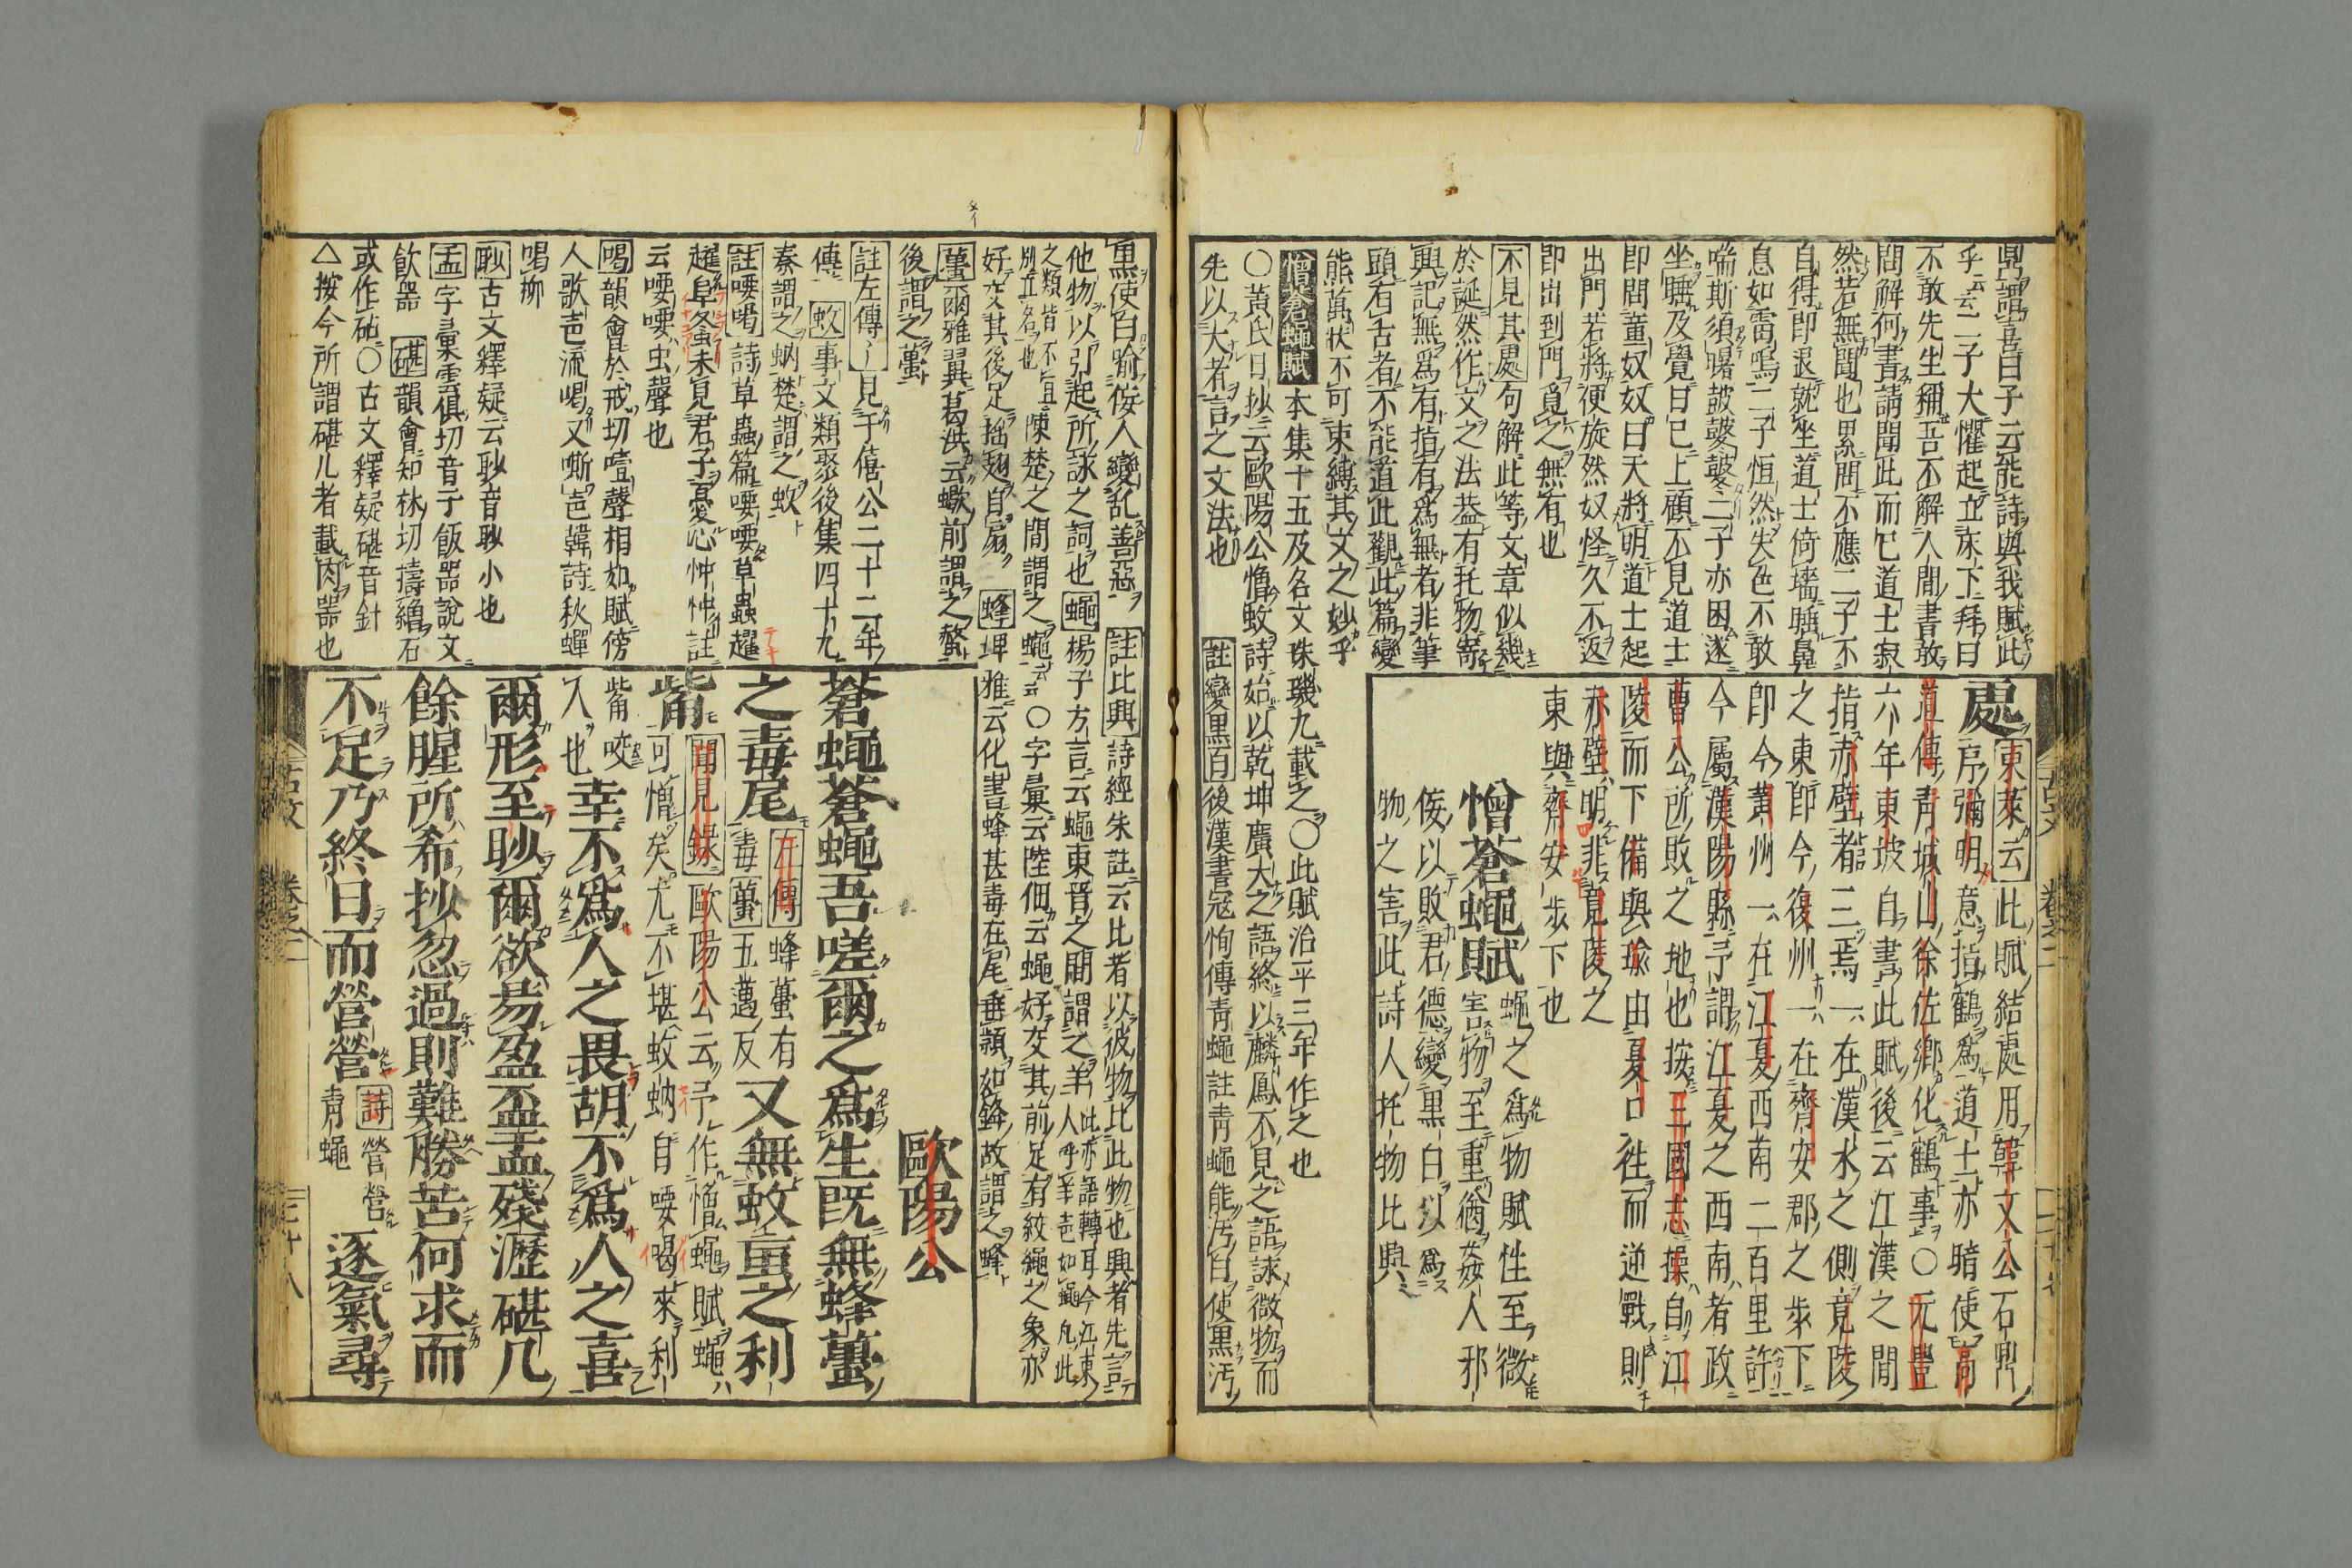 鼎謂喜曰子云能詩與我賦此
乎云云二子大懼起立床下拜曰
不敢先生稱吾不解人間書敢
問解何書請聞此而已道士寂
然若無聞也累問不應二子不
自得即退就坐道士倚墻睡鼻
息如雷鳴二子恒然失色不敢
喘斯須曙皷鼕鼕二子亦困遂
坐睡及覺日已上顧不見道士
即問童奴奴曰天將明道士起
出門若將便旋然奴怪久不返
即出到門覓之無有也
不見其處句解此等文章似幾
於誕然作文之法葢有托物寄
興記無爲有揎有爲無者非筆
頭有舌者不能道此觀此篇變
態萬狀不可束縛其文之妙乎
憎蒼蠅賦本集十五及名文珠璣九載之○此賦治平三年作之也
○黃氏日抄云歐陽公憎蚊詩始以乾坤廣大之語終以麟鳳不見之語詠微物而
先以大者言之文法也 註變黑白後漢書寇恂傳靑蠅註靑蠅能汚白使黑汚
處東萊云此賦結處用韓文公石鼎
序彌明意指鶴爲道士亦暗使高
道傳靑城山徐佐卿化鶴事○元豐
六年東坡自書此賦後云江漢之間
指赤壁者三焉一在漢水之側竟陵
之東即今復州一在齊安郡之步下
即今黃州一在江夏西南二百里許
今屬漢陽縣予謂江夏之西南者政
曹公所敗之地也按三國志操自江
陵而下備與瑜由夏口徃而逆戰則
赤壁明非竟陵之
東與齊安步下也
憎蒼蠅賦蠅之爲物賦性至微害物至重猶姦人邪
佞以敗君德變黑白以爲
物之害此詩人托物比興
黑使白喻佞人變乱善惡 註比興詩經朱註云比者以彼物比此物也興者先言
他物以引起所詠之詞也 蠅楊子方言云蠅東晋之間謂之羊此亦語轉耳今江東人呼羊声如蠅凡此
之類皆不宜別立名也陳楚之間謂之蠅云云○字彙云陸佃云蠅好交其前足有絞繩之象亦
好交其後足揺翅自扇 蜂埤雅云化書蜂甚毒在尾垂頴如鋒故謂之蜂
蠆爾雅翼葛洪云蠍前謂之螫
後謂之蠆
註左傳見于僖公二十二年
傳 蚊事文類聚後集四十九
秦謂之蚋楚謂之蚊
註喓喝詩草蟲篇喓喓草蟲趯
趯阜螽未見君子憂心忡忡註
云喓喓虫聲也
喝韻會於戒切噎聲相如賦傍
人歌声流喝又嘶声韓詩秋蟬
喝柳
眇古文釋疑云眇音眇小也
盂字彙雲俱切音于飯器說文
飲器 碪韻會知林切擣繒石
或作砧○古文釋疑碪音針
△按今所謂碪几者載肉器也
歐陽公
蒼蠅蒼蠅吾嗟爾之爲生既無蜂蠆
之毒尾左傳蜂蠆有毒蠆五邁反又無蚊䖟之利
觜聞見錄歐陽公云予作憎蠅賦蠅可憎矣尤不堪蚊蚋自喓喝來利
觜咬人也幸不爲人之畏胡不爲人之喜
爾形至眇爾欲易盈盃盂殘瀝碪几
餘腥所希抄忽過則難勝苦何求而
不足乃終日而營營詩營營靑蠅逐氣尋